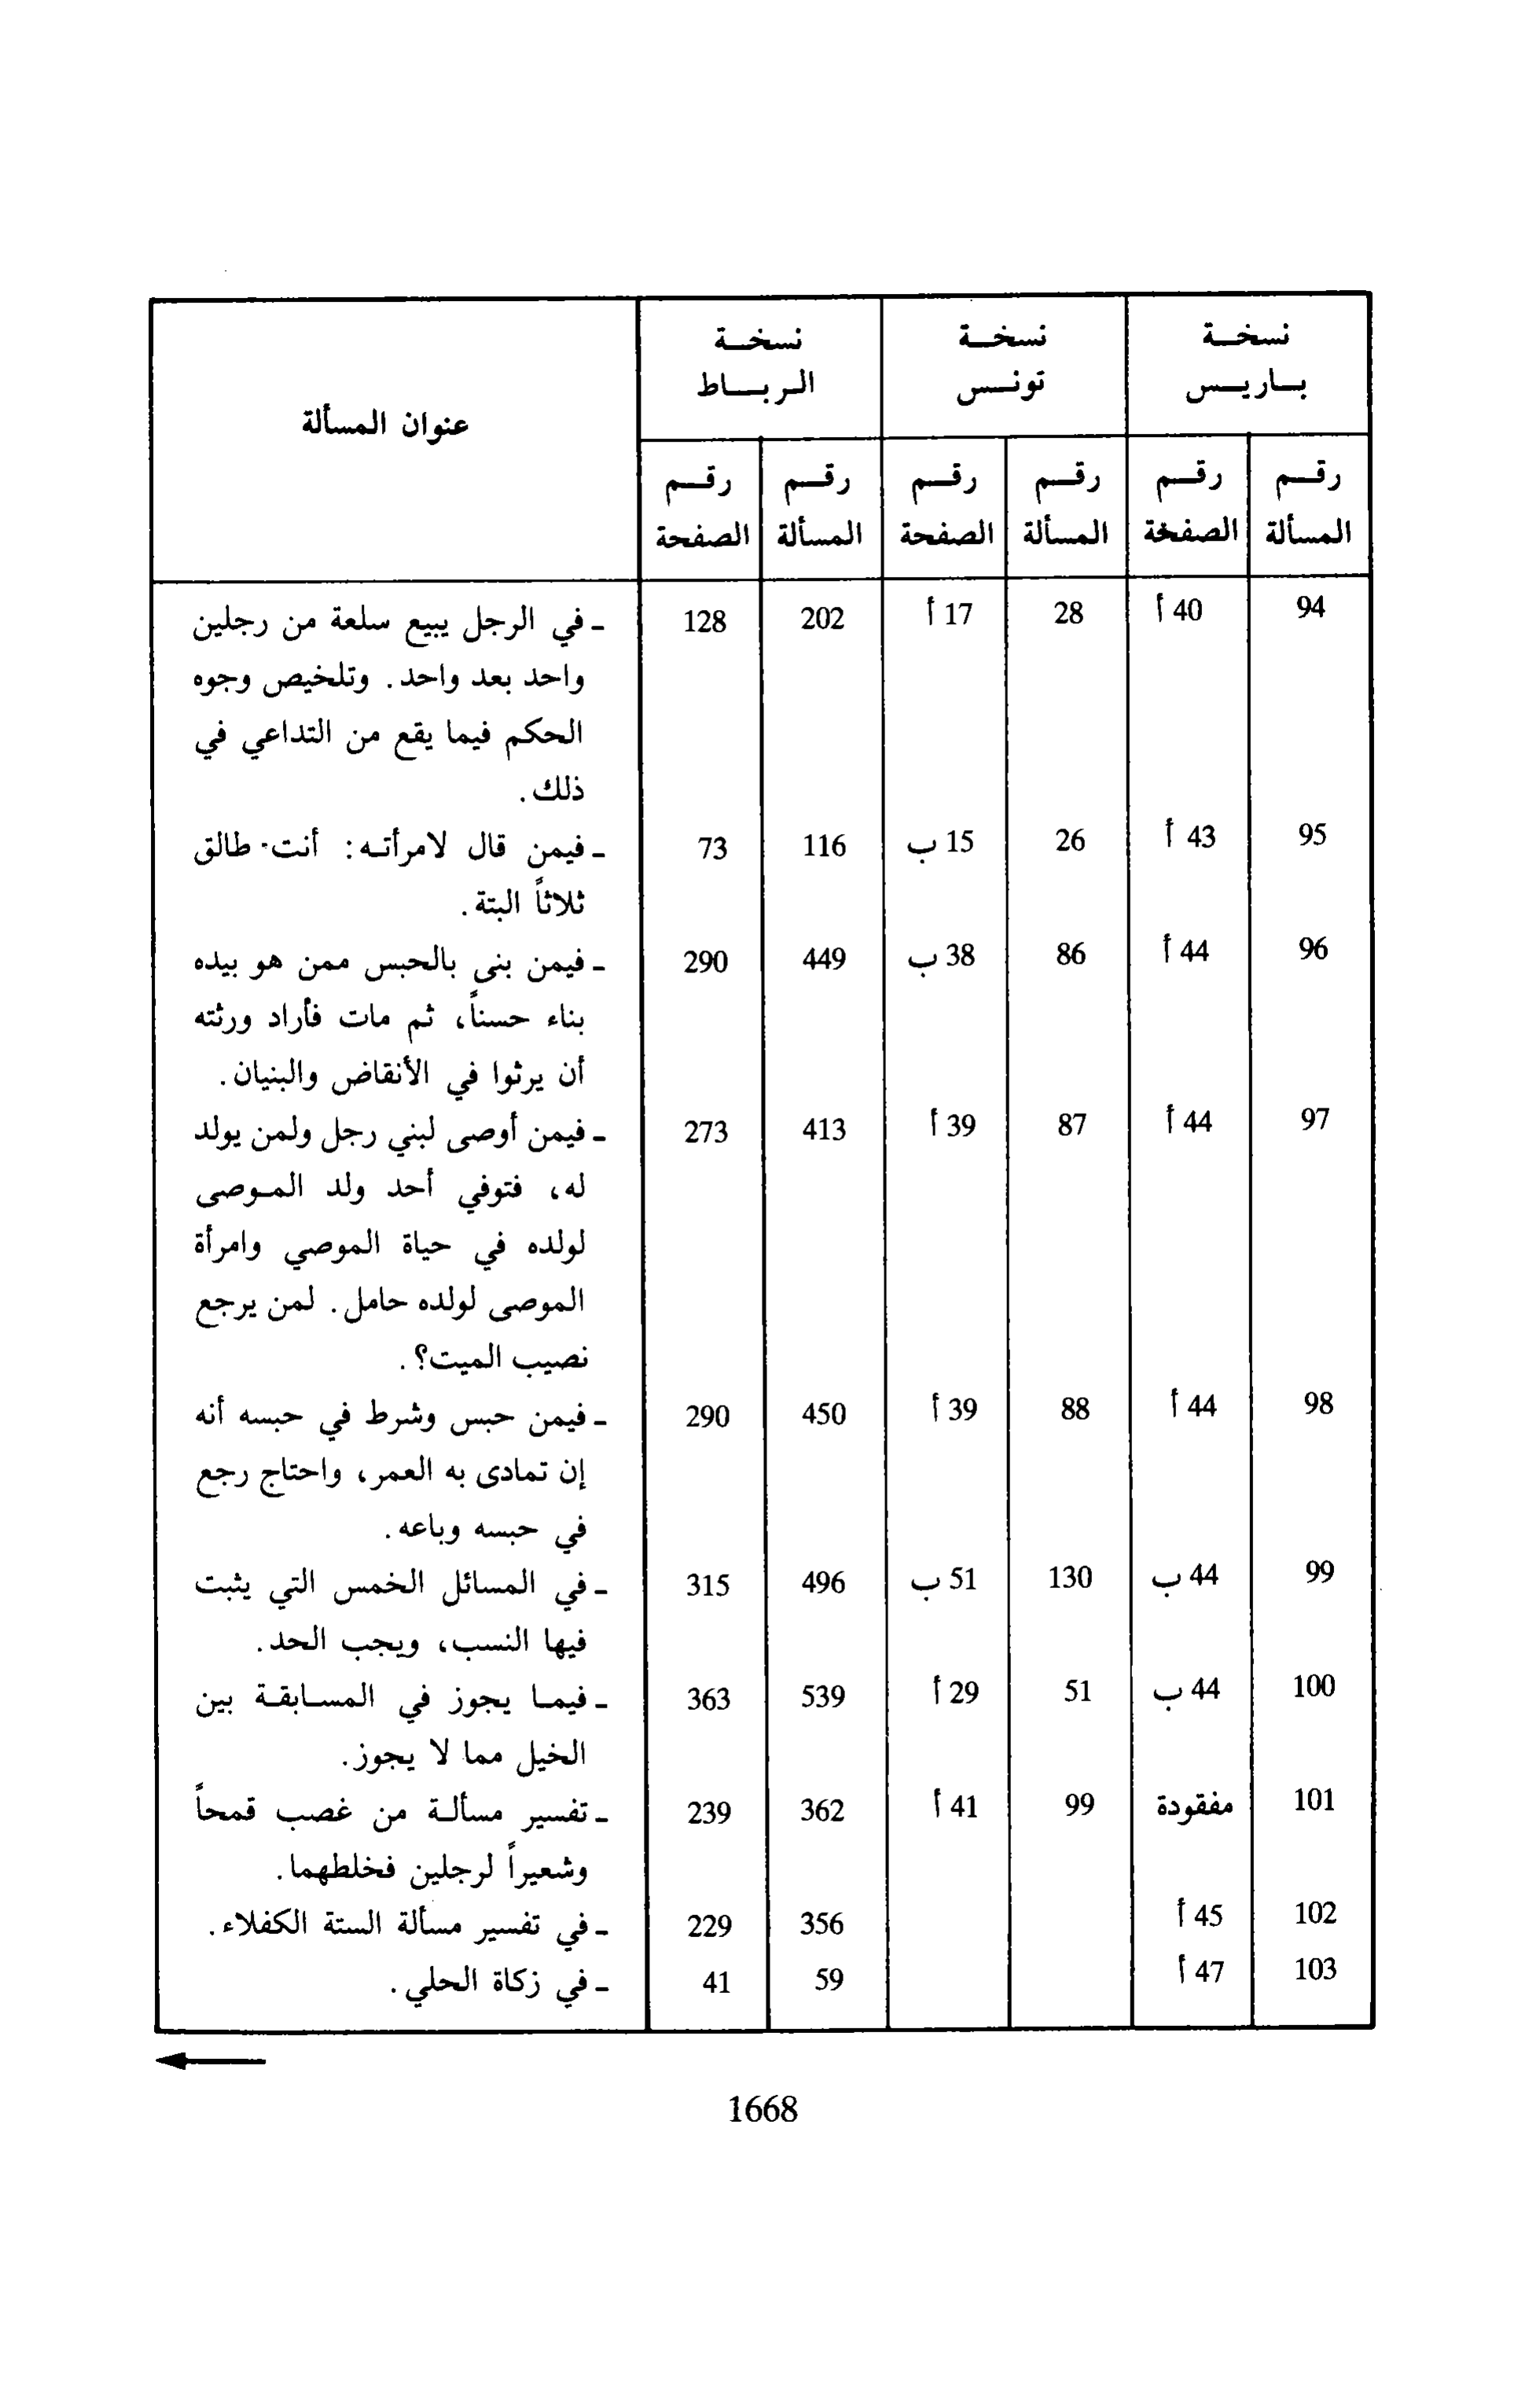 نسخة نسخة نسخة
باريس تونس الرباط عنوان المسألة
رقم رقم رقم رقم رقم رقم
المسألة الصفخة المسألة الصفحة المسألة الصفحة
94 40 أ 28 17 أ 202 128 - في الرجل يبيع سلعة من رجلين
واحد بعد واحد. وتلخيص وجوه
الحكم فيما يقع من التداعي في
ذلك.
95 43 أ 26 15 ب 116 73 - فيمن قال لامرأته: أنت طالق
ثلاثاً البتة.
96 44 أ 86 38 ب 449 290 - فيمن بنى بالحبس ممن هو بيده
بناء حسناً، ثم مات فأراد ورثته
أن يرثوا في الأنقاض والبنيان.
97 44 أ 87 39 أ 413 273 - فيمن أوصى لبني رجل ولمن يولد
له، فتوفي أحد ولد الموصى
لولده في حياة الموصي وامرأة
الموصى لولده حامل. لمن يرجع
نصيب الميت؟.
98 44 أ 88 39 أ 450 290 - فيمن حبس وشرط في حبسه أنه
إن تمادى به العمر، واحتاج رجع
في حبسه وباعه.
99 44 ب 130 51 ب 496 315 - في المسائل الخمس التي يثبت
فيها النسب، ويجب الحد.
100 44 ب 51 29 أ 539 363 - فيما يجوز في المسابقة بين
الخيل مما لا يجوز.
101 مفقودة 99 41 أ 362 239 - تفسير مسألة من غصب قمحاً
وشعيراً لرجلين فخلطهما.
102 45 أ 356 229 - في تفسير مسألة الستة الكفلاء.
103 47 أ 59 41 - في زكاة الحلي.
1668